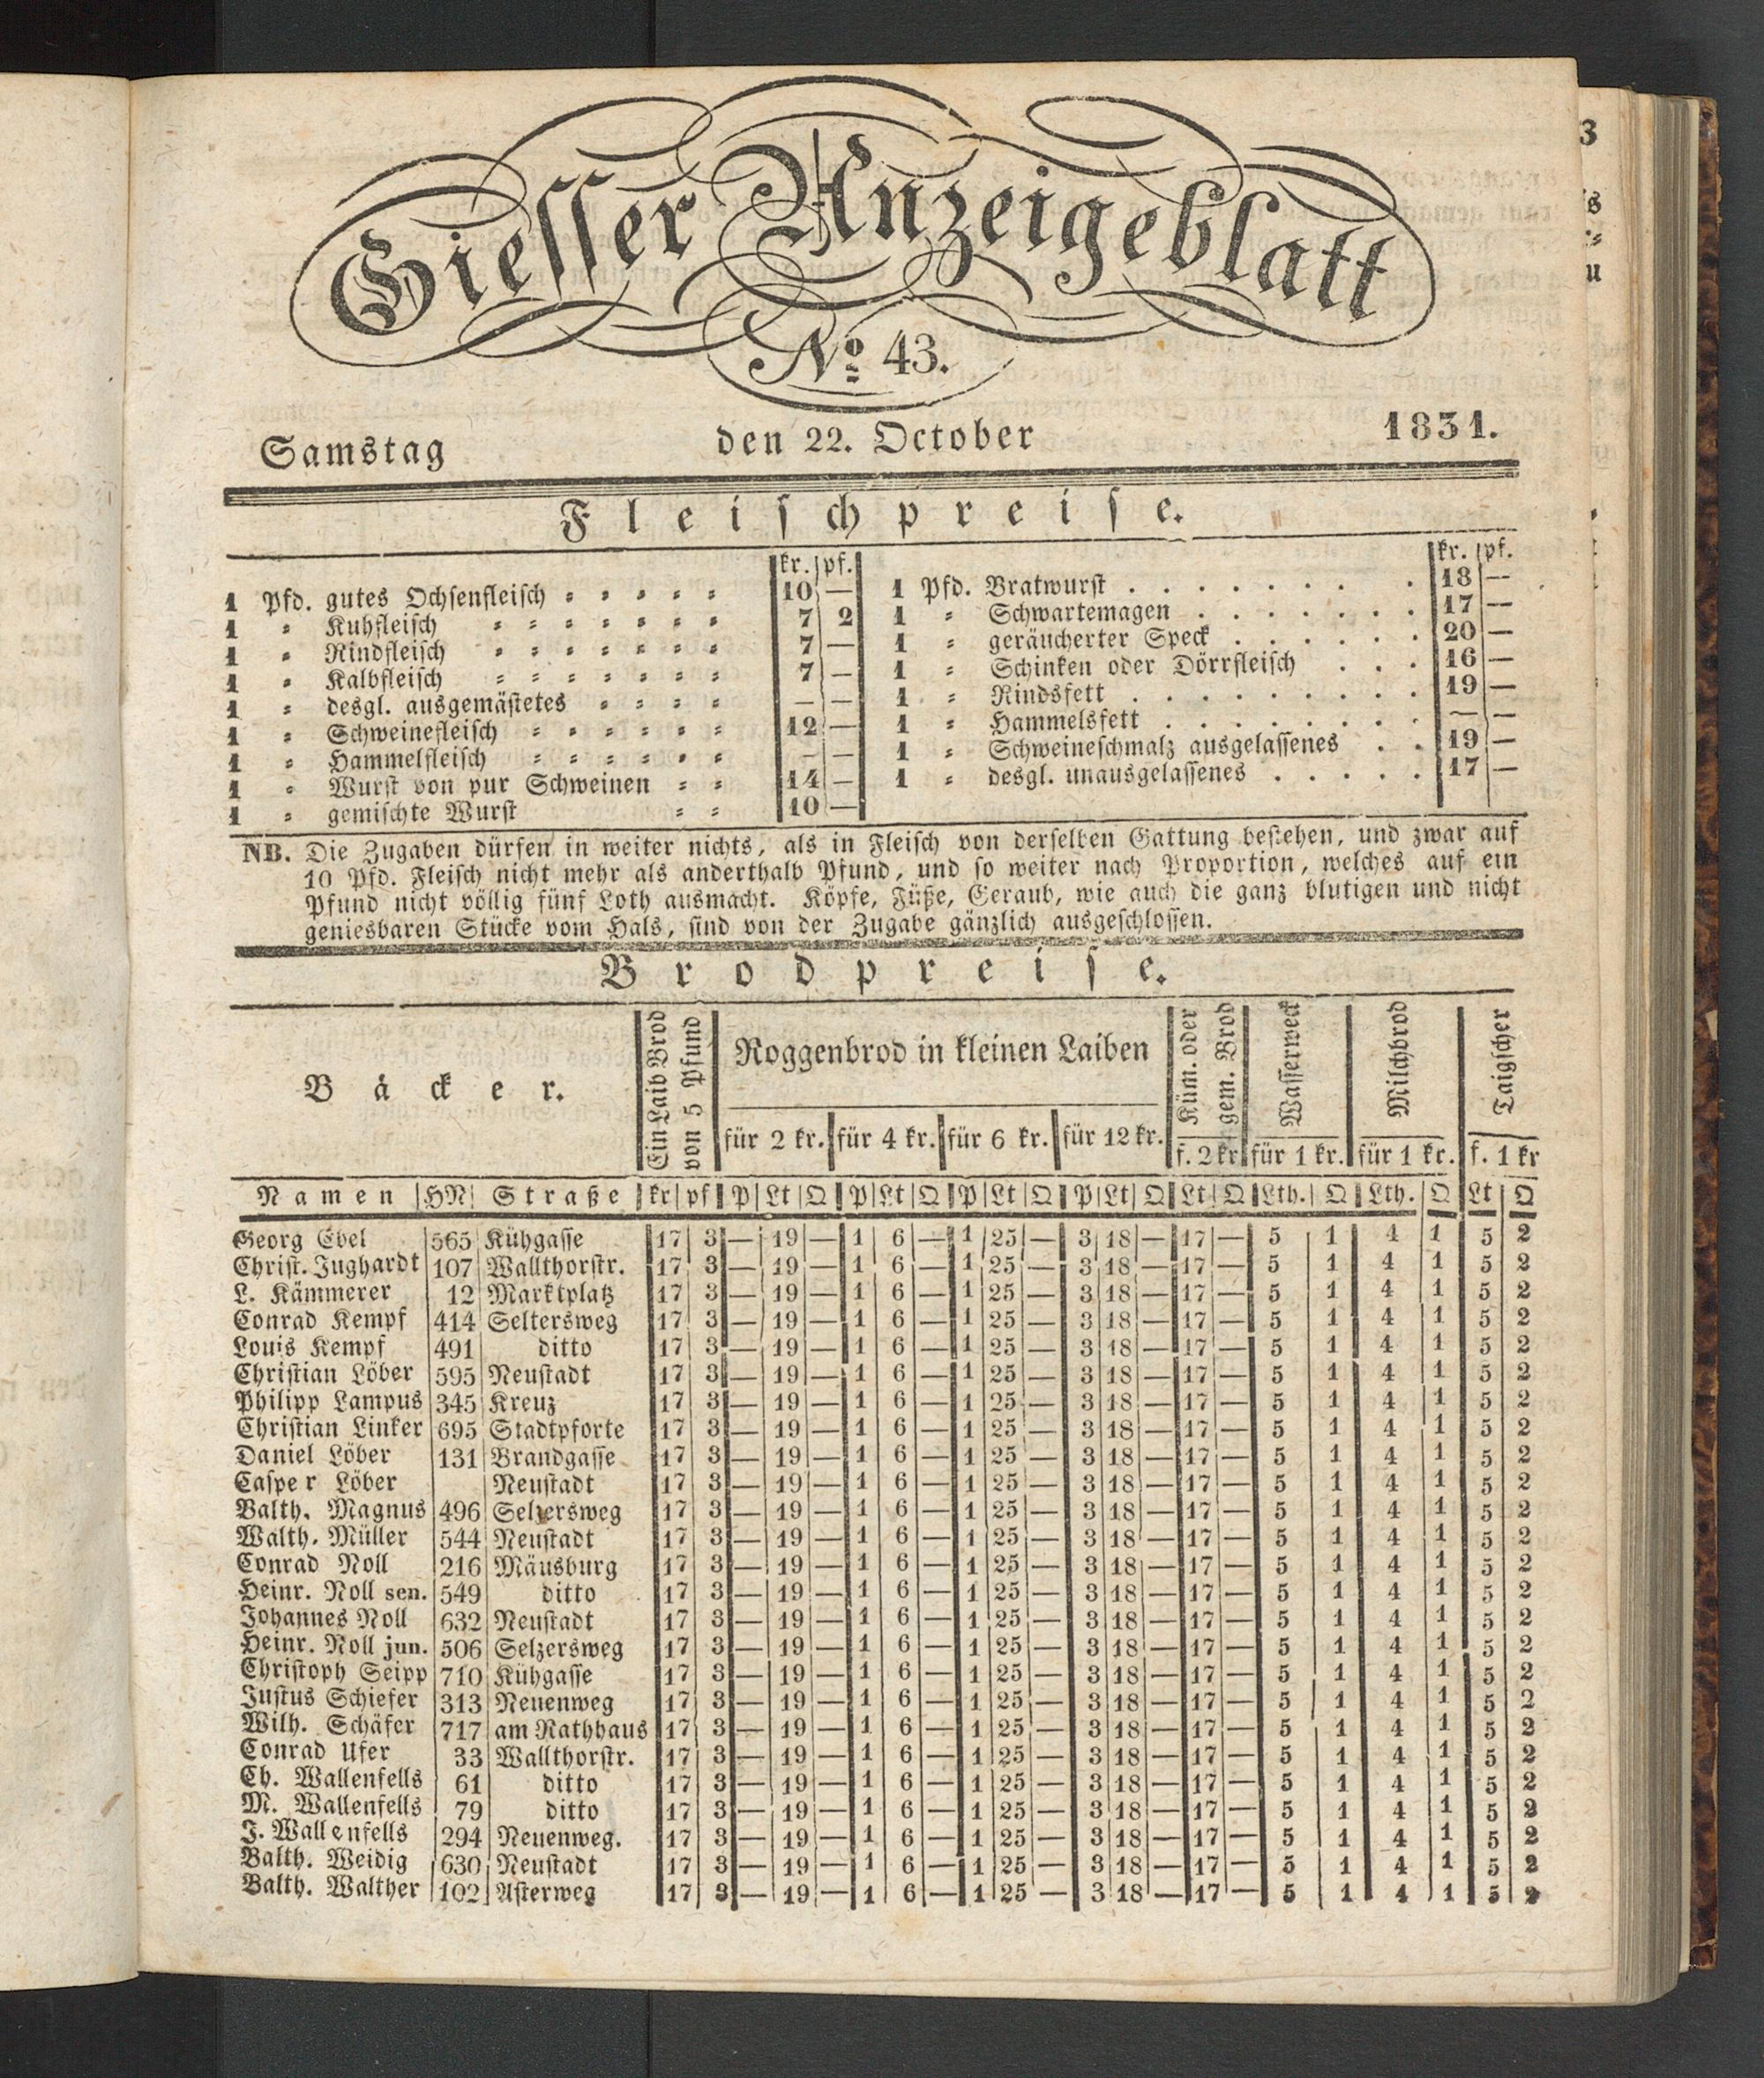 Giesser Anzeigeblatt
No 43.
Samstag den 22. October 1831.
Fleischpreise.
kr. pf. kr. pf.
1 Pfd. gutes Ochsenfleisch 10 —
1 " Kuhfleisch 7 2
1 " Rindfleisch 7 —
1 " Kalbfleisch 7 —
1 " desgl. ausgemästetes — —
1 " Schweinefleisch 12 —
1 " Hammelfleisch — —
1 " Wurst von pur Schweinen 14 —
1 " gemischte Wurst 10 —
1 Pfd. Bratwurst 18 —
1 " Schwartemagen 17 —
1 " geräucherter Speck 20 —
1 " Schinken oder Dörrfleisch 16 —
1 " Rindsfett 19 —
1 " Hammelsfett — —
1 " Schweineschmalz ausgelassenes 19 —
1 " desgl. unausgelassenes 17 —
NB. Die Zugaben dürfen in weiter nichts, als in Fleisch von derselben Gattung bestehen, und zwar auf
10 Pfd. Fleisch nicht mehr als anderthalb Pfund, und so weiter nach Proportion, welches auf ein
Pfund nicht völlig fünf Loth ausmacht. Köpfe, Füße, Geraub, wie auch die ganz blutigen und nicht
geniesbaren Stücke vom Hals, sind von der Zugabe gänzlich ausgeschlossen.
Brodpreise.
Bäcker.
Ein Laib Brod
von 5 Pfund
Roggenbrod in kleinen Laiben
für 2 kr. für 4 kr. für 6 kr. für 12 kr.
Küm. oder
gem. Brod
f. 2 kr
Wasserweck
für 1 kr.
Milchbrod
für 1 kr.
Taigscher
f. 1 kr
Namen HN Straße kr pf P Lt Q P Lt Q P Lt Q P Lt Q Lt Q Lth. Q Lth. Q Lt Q
Georg Ebel 565 Kühgasse 17 3 — 19 — 1 6 — 1 25 — 3 18 — 17 — 5 1 4 1 5 2
Christ. Jughardt 107 Wallthorstr. 17 3 — 19 — 1 6 — 1 25 — 3 18 — 17 — 5 1 4 1 5 2
L. Kämmerer 12 Marktplatz 17 3 — 19 — 1 6 — 1 25 — 3 18 — 17 — 5 1 4 1 5 2
Conrad Kempf 414 Seltersweg 17 3 — 19 — 1 6 — 1 25 — 3 18 — 17 — 5 1 4 1 5 2
Louis Kempf 491 ditto 17 3 — 19 — 1 6 — 1 25 — 3 18 — 17 — 5 1 4 1 5 2
Christian Löber 595 Neustadt 17 3 — 19 — 1 6 — 1 25 — 3 18 — 17 — 5 1 4 1 5 2
Philipp Lampus 345 Kreuz 17 3 — 19 — 1 6 — 1 25 — 3 18 — 17 — 5 1 4 1 5 2
Christian Linker 695 Stadtpforte 17 3 — 19 — 1 6 — 1 25 — 3 18 — 17 — 5 1 4 1 5 2
Daniel Löber 131 Brandgasse 17 3 — 19 — 1 6 — 1 25 — 3 18 — 17 — 5 1 4 1 5 2
Casper Löber Neustadt 17 3 — 19 — 1 6 — 1 25 — 3 18 — 17 — 5 1 4 1 5 2
Balth. Magnus 496 Selzersweg 17 3 — 19 — 1 6 — 1 25 — 3 18 — 17 — 5 1 4 1 5 2
Walth. Müller 544 Neustadt 17 3 — 19 — 1 6 — 1 25 — 3 18 — 17 — 5 1 4 1 5 2
Conrad Noll 216 Mäusburg 17 3 — 19 — 1 6 — 1 25 — 3 18 — 17 — 5 1 4 1 5 2
Heinr. Noll sen. 549 ditto 17 3 — 19 — 1 6 — 1 25 — 3 18 — 17 — 5 1 4 1 5 2
Johannes Noll 632 Neustadt 17 3 — 19 — 1 6 — 1 25 — 3 18 — 17 — 5 1 4 1 5 2
Heinr. Noll jun. 506 Selzersweg 17 3 — 19 — 1 6 — 1 25 — 3 18 — 17 — 5 1 4 1 5 2
Christoph Seipp 710 Kühgasse 17 3 — 19 — 1 6 — 1 25 — 3 18 — 17 — 5 1 4 1 5 2
Justus Schiefer 313 Neuenweg 17 3 — 19 — 1 6 — 1 25 — 3 18 — 17 — 5 1 4 1 5 2
Wilh. Schäfer 717 am Rathhaus 17 3 — 19 — 1 6 — 1 25 — 3 18 — 17 — 5 1 4 1 5 2
Conrad Ufer 33 Wallthorstr. 17 3 — 19 — 1 6 — 1 25 — 3 18 — 17 — 5 1 4 1 5 2
Ch. Wallenfells 61 ditto 17 3 — 19 — 1 6 — 1 25 — 3 18 — 17 — 5 1 4 1 5 2
M. Wallenfells 79 ditto 17 3 — 19 — 1 6 — 1 25 — 3 18 — 17 — 5 1 4 1 5 2
J. Wallenfells 294 Neuenweg. 17 3 — 19 — 1 6 — 1 25 — 3 18 — 17 — 5 1 4 1 5 2
Balth. Weidig 630 Neustadt 17 3 — 19 — 1 6 — 1 25 — 3 18 — 17 — 5 1 4 1 5 2
Balth. Walther 102 Asterweg 17 3 — 19 — 1 6 — 1 25 — 3 18 — 17 — 5 1 4 1 5 2